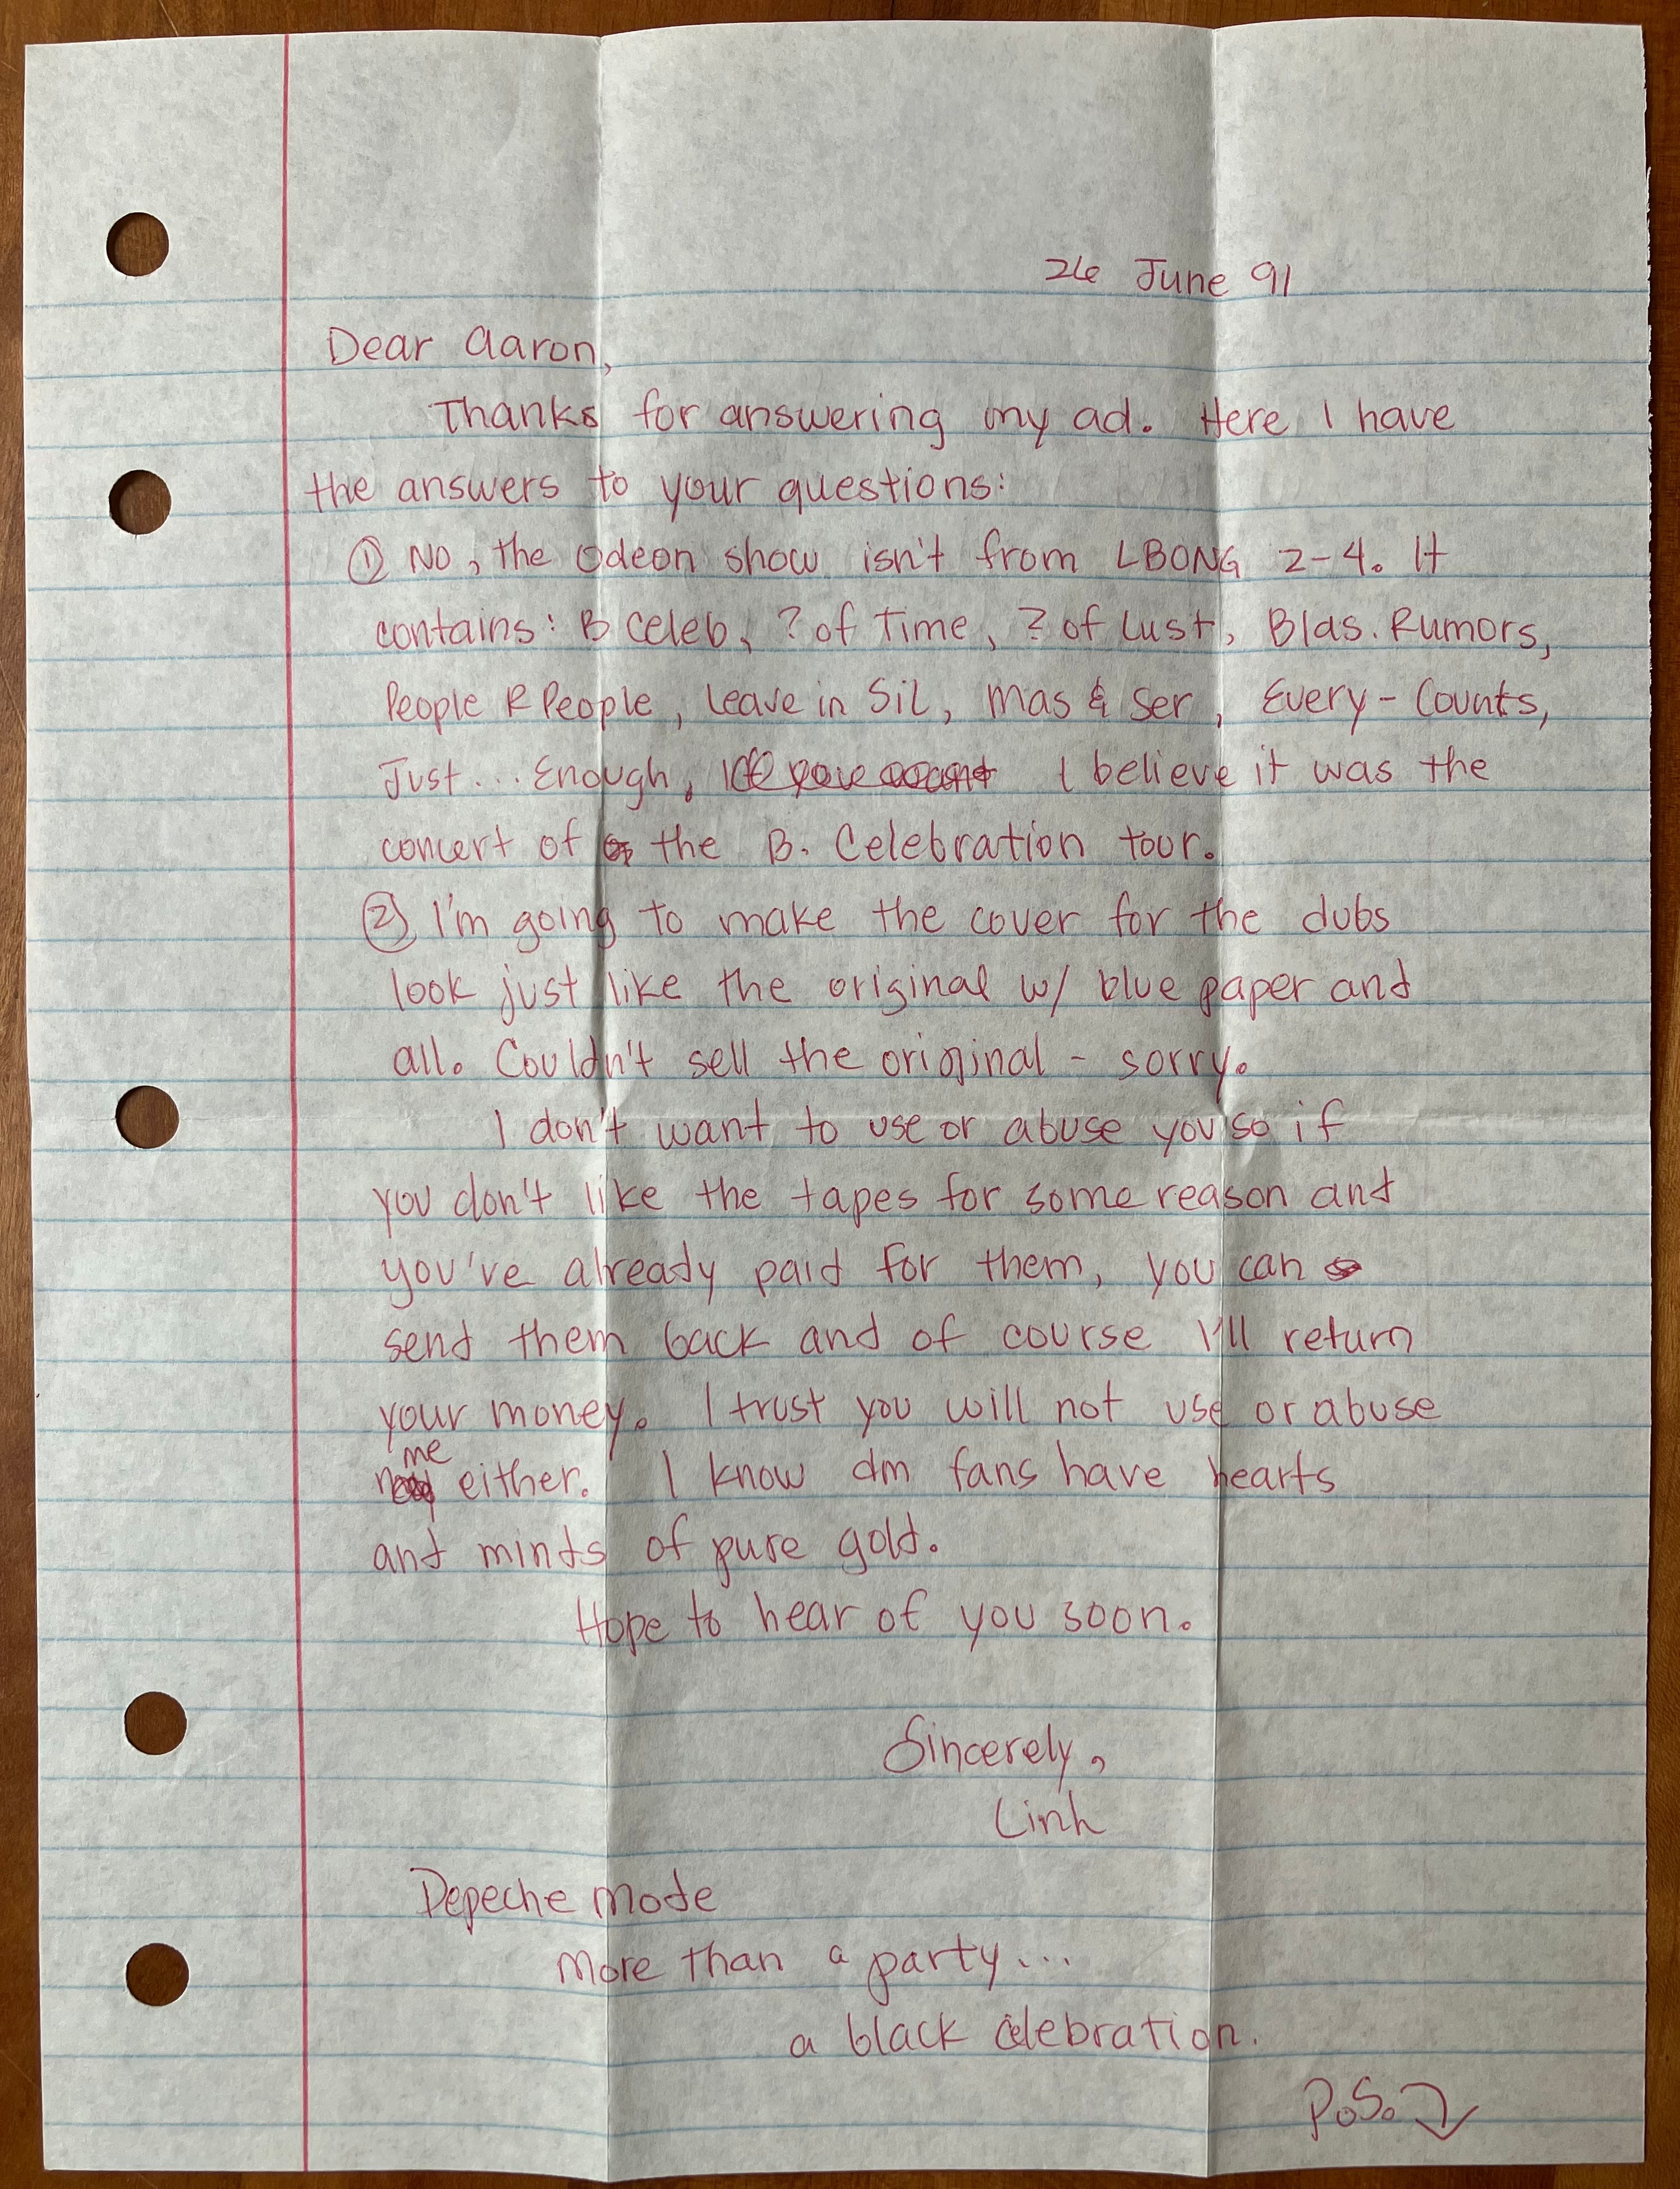 26 June 91
Dear Aaron,
Thanks for answering my ad. Here I have
the answers to your questions:
① No, the Odeon show isn't from LBONG 2-4. It
contains: B Celeb, ? of Time, ? of Lust, Blas. Rumors,
People R People, Leave in Sil, Mas & Ser, Every-Counts,
Just... Enough, I believe it was the
concert of the B. Celebration tour.
② I'm going to make the cover for the dubs
look just like the original w/ blue paper and
all. Couldn't sell the original - sorry.
I don't want to use or abuse you so if
you don't like the tapes for some reason and
you've already paid for them, you can
send them back and of course I'll return
your money. I trust you will not use or abuse
me either. I know dm fans have hearts
and minds of pure gold.
Hope to hear of you soon.
Sincerely,
Linh
Depeche Mode
More than a party...
a black celebration.
P.S.